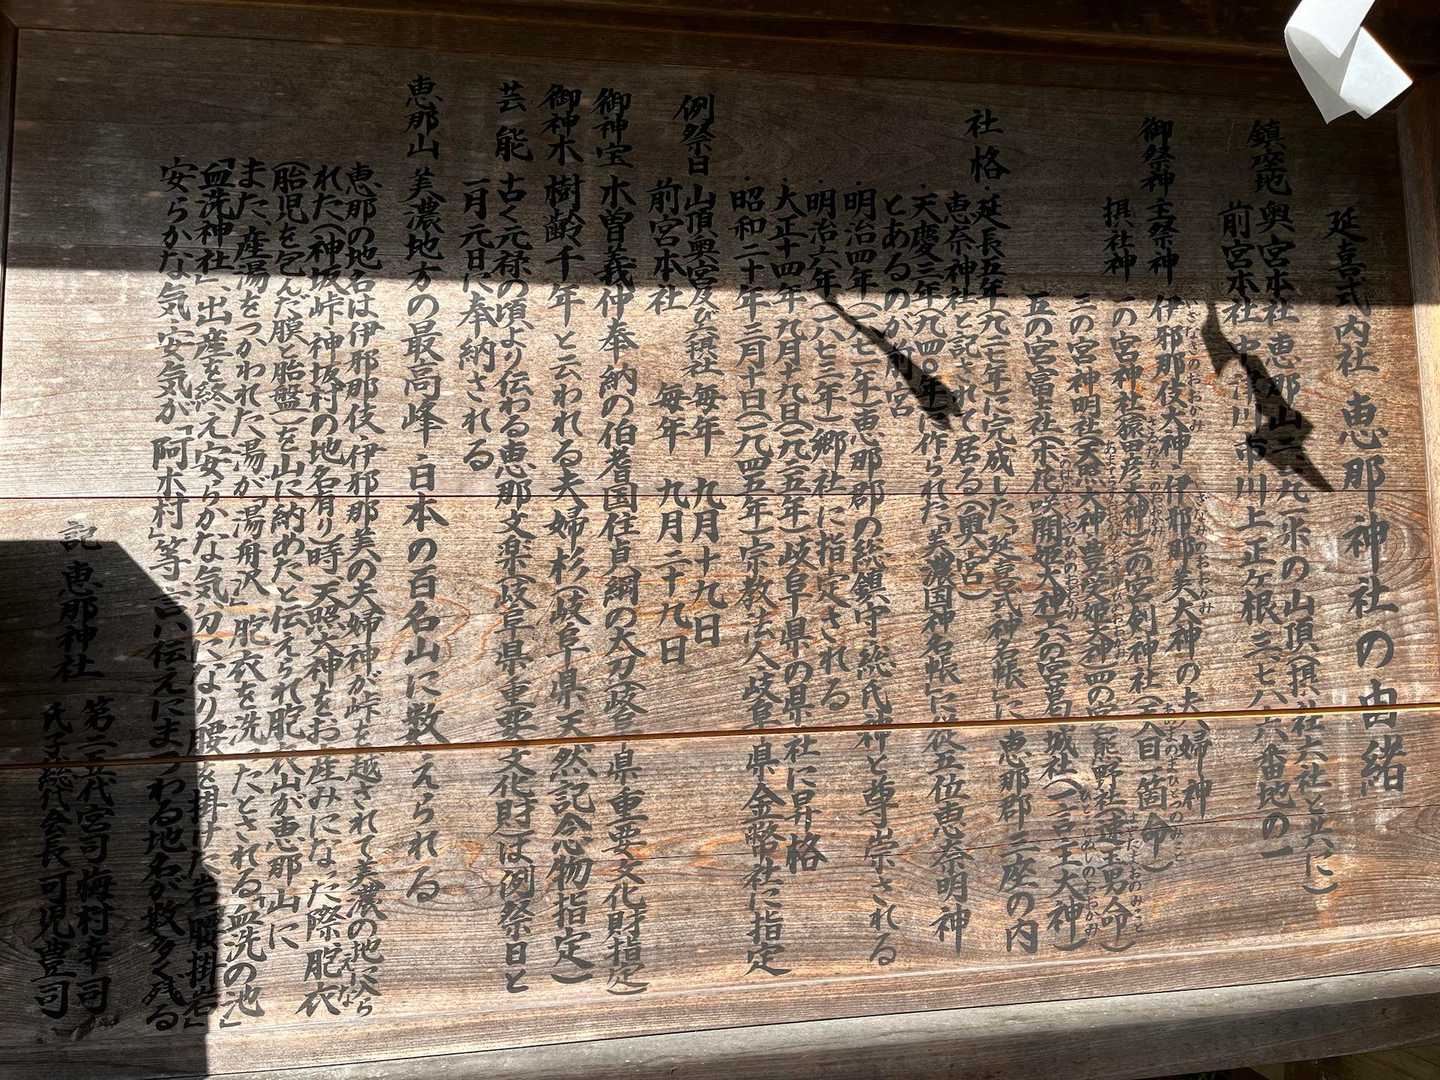 延喜式内社 恵那神社の由緒
鎮座地 奥宮本社 恵那山二一九一米の山頂(摂社六社と共に)
前宮本社 中津川市中川上正ヶ根三ノ七八六番地の一
御祭神 主祭神 伊邪那伎大神・伊邪那美大神の夫婦神
摂社神 一の宮神社(猿田彦大神)二の宮剣神社(天目一箇命)
三の宮神明社(天照大神・豊受姫大神)四の宮熊野社(速玉男命)
五の宮富士社(木花咲開姫大神)六の宮葛城社(一言主大神)
社格 ・延長五年(九二七年)に完成した「延喜式神名帳」に恵那郡三座の内
恵奈神社と記されて居る(奥宮)
・天慶三年(九四〇年)に作られた「美濃国神名帳」に従五位恵奈明神
とあるのが前宮
・明治四年(一八七一年)恵那郡の総鎮守・総氏神と尊崇される
・明治六年(一八七三年)郷社に指定される
・大正十四年九月十九日(一九二五年)岐阜県の県社に昇格
・昭和二十年三月十日(一九四五年)宗教法人岐阜県金幣社に指定
例祭日 山頂奥宮及び六摂社 毎年 九月十九日
前宮本社 毎年 九月二十九日
御神宝 木曽義仲奉納の伯耆国住貞綱の大刀(岐阜県重要文化財指定)
御神木 樹齢千年と云われる夫婦杉(岐阜県天然記念物指定)
芸能 古く元禄の頃より伝わる恵那文楽(岐阜県重要文化財)は例祭日と
一月元日に奉納される
恵那山 美濃地方の最高峰・日本の百名山に数えられる
恵那の地名は伊邪那伎・伊邪那美の夫婦神が峠を越されて美濃の地に入ら
れた(神坂峠・神坂村の地名有り)時 天照大神をお産みになった際胞衣
(胎児を包んだ膜と胎盤)を山に納めたと伝えられ胞衣山が恵那山に
また、産湯をつかわれた湯が「湯舟沢」胞衣を洗ったとされる「血洗の池」
「血洗神社」、出産を終え安らかな気分になり腰を掛けた岩「腰掛岩」
安らかな気・安気が「阿木村」等言い伝えにまつわる地名が数多く残る
記 恵那神社 第二五代宮司梅村幸司
氏子総代会長 可児豊司